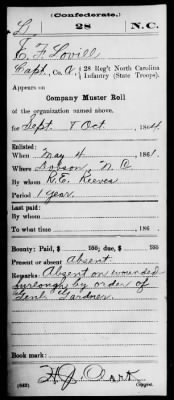 (Confederate.)
L 28 N.C.
E. F. Lovill
Capt., Co. A, 28 Reg't North Carolina
Infantry (State Troops).
Appears on
Company Muster Roll
of the organization named above,
for Sept & Oct, 1864.
Enlisted:
When May 4, 1861.
Where Dobson, N C
By whom R. E. Reeves
Period 1 year
Last paid:
By whom
To what time , 186 .
Bounty: Paid, $ 100; due, $ 100
Present or absent Absent
Remarks: Absent on wounded
furlough by order of
Genl. Gardner.
Book mark:
H. J. Clark
(642) Copyist.